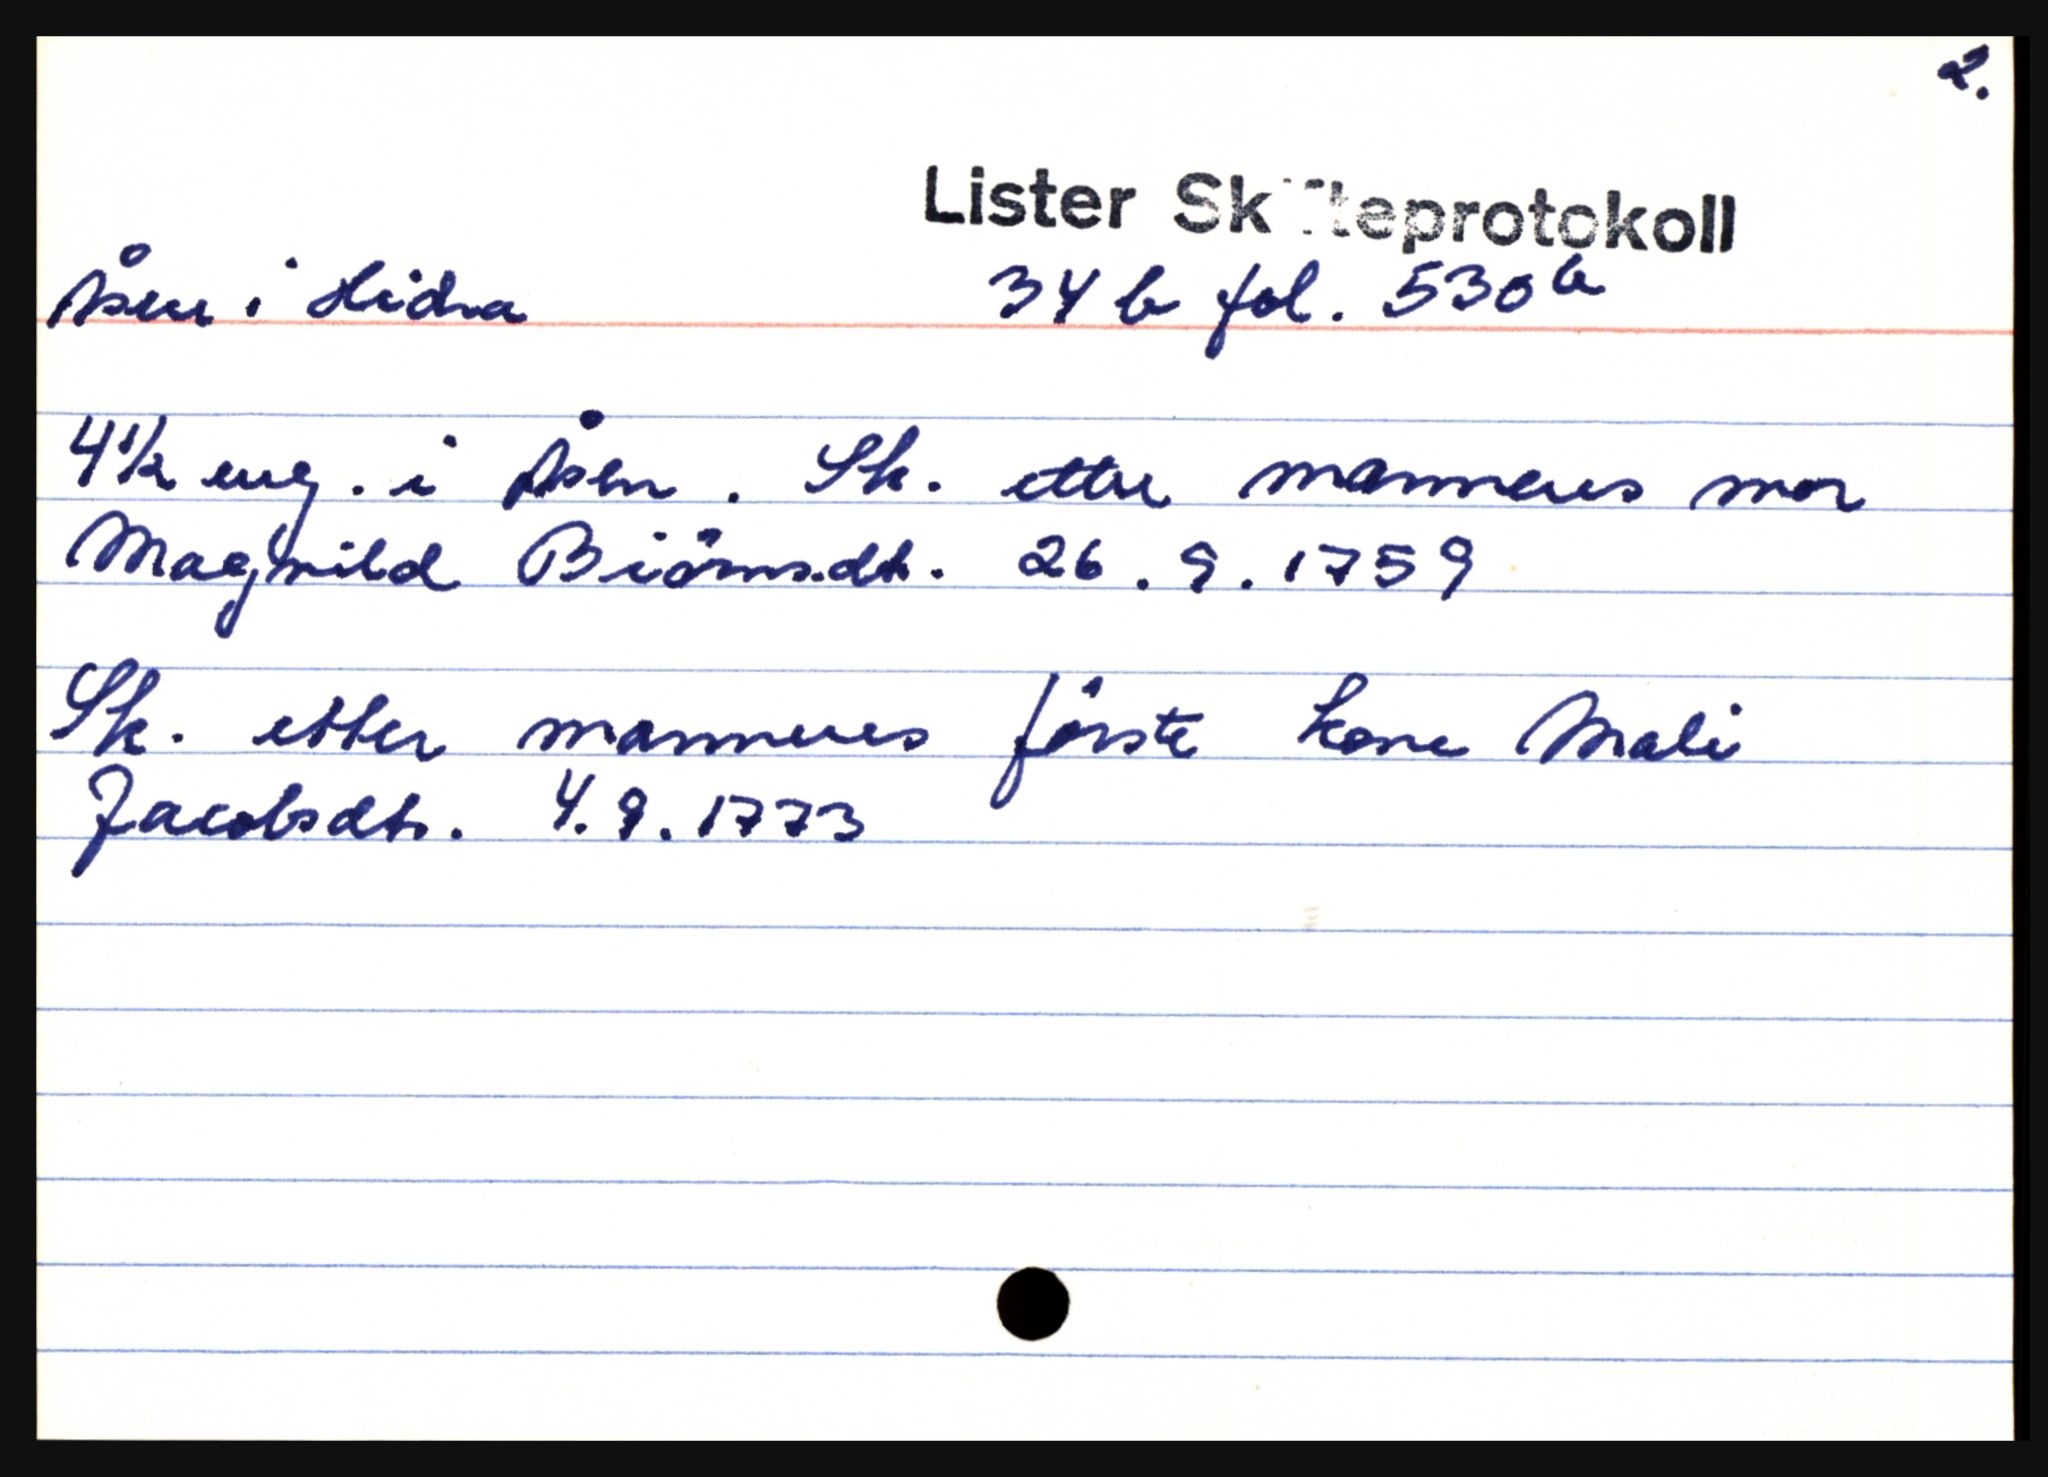 2.
Lister Skifteprotokoll
Åsen i Hidra 34 b fol. 530b
4 1/2 eng. i Åsen. Sk. etter mannens mor
Magnild Biörnsdt. 26.9.1759
Sk. etter mannens förste kone Mali
Jacobsdtr. 4.9.1773